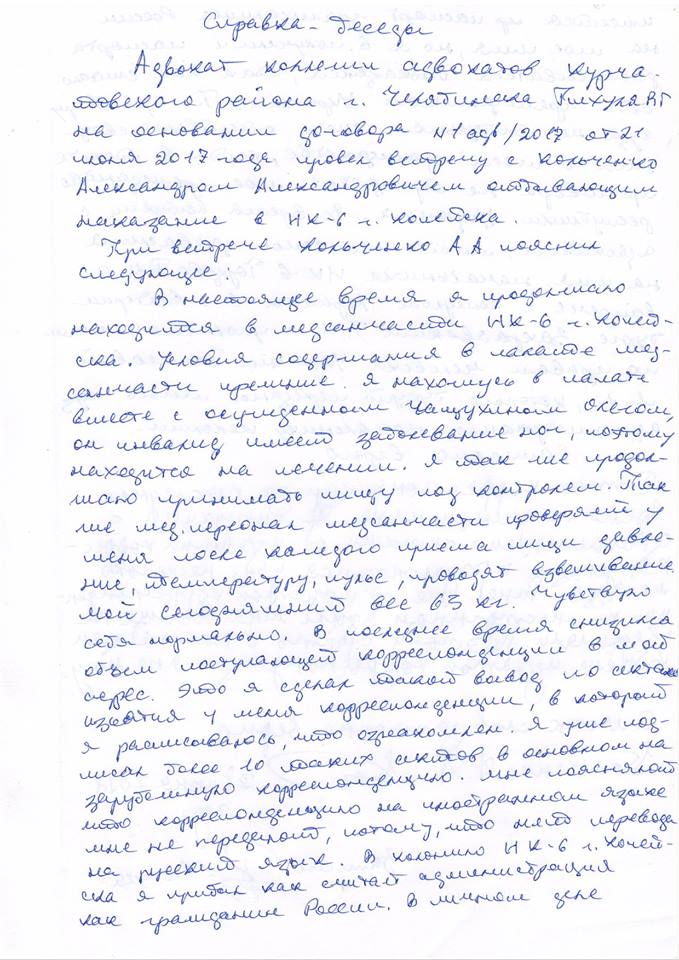 Справка-беседы
Адвокат коллегии адвокатов Курча-
товского района г. Челябинска Пихуля ВГ
на основании договора N1 адв/2017 от 21
июня 2017 года провел встречу с Кольченко
Александром Александровичем отбывающим
наказание в ИК-6 г. Копейска.
При встрече Кольченко А А пояснил
следующее:
В настоящее время я продолжаю
находится в медсанчасти ИК-6 г. Копей-
ска. Условия содержания в палате мед-
санчасти прежние. Я нахожусь в палате
вместе с осужденным Чащухиным Олегом,
он инвалид имеет заболевание ног, поэтому
находится на лечении. Я так же продол-
жаю принимать пищу под контролем. Так
же мед. персонал медсанчасти проверяет у
меня после каждого приема пищи давле-
ние, температуру, пульс, проводят взвешивание
мой сегодняшний вес 63 кг. Чувствую
себя нормально. В последнее время снизился
объем поступающей корреспонденции в мой
адрес. Это я сделал такой вывод по актам
изъятия у меня корреспонденции, в которой
я расписываюсь, что ознакомлен. Я уже под-
писал более 10 таких актов в основном на
зарубежную корреспонденцию. Мне пояснили
что корреспонденцию на иностранном языке
мне не передают, потому, что нет перевода
на русский язык. В колонию ИК-6 г. Копей-
ска я прибыл как считает администрация
как гражданин России. В личном деле